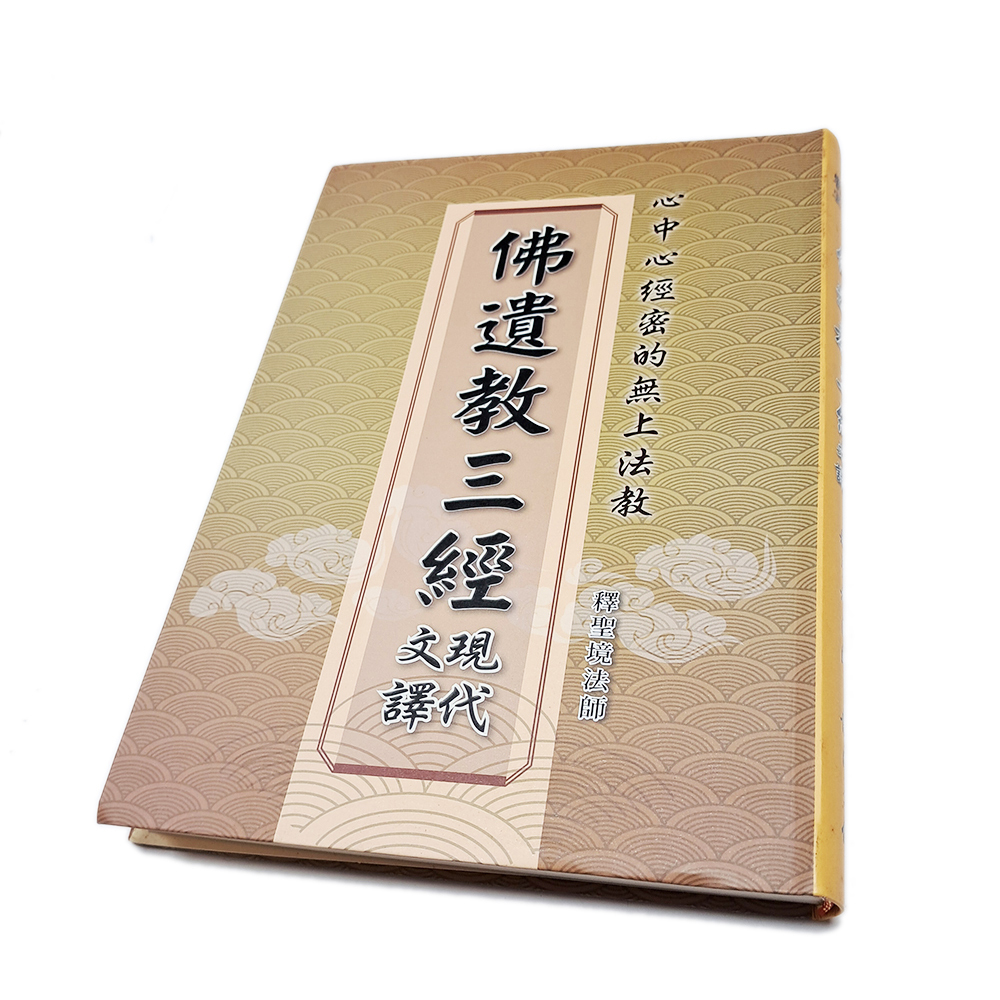 心中心經密的無上法教
佛遺教三經
現代
文譯
釋聖境法師